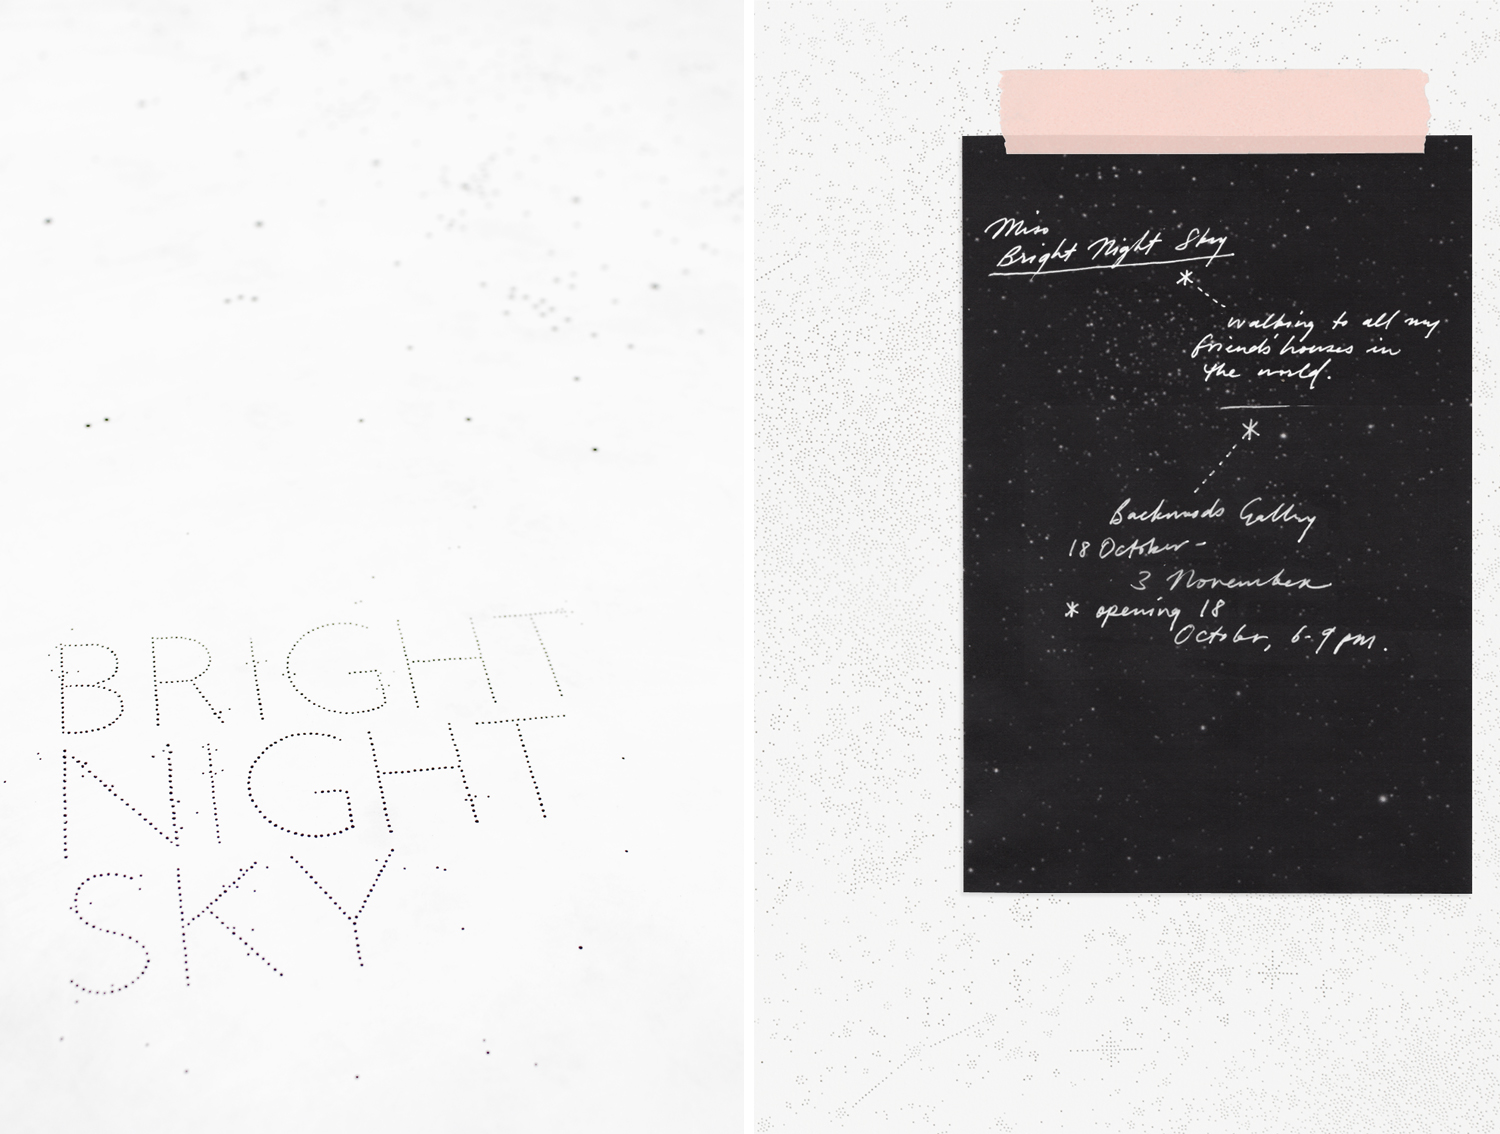 BRIGHT
NIGHT
SKY
Miss
Bright Night Sky
*
walking to all my
friends' houses in
the world.
*
Backwoods Gallery
18 October -
3 November
* opening 18
October, 6-9pm.